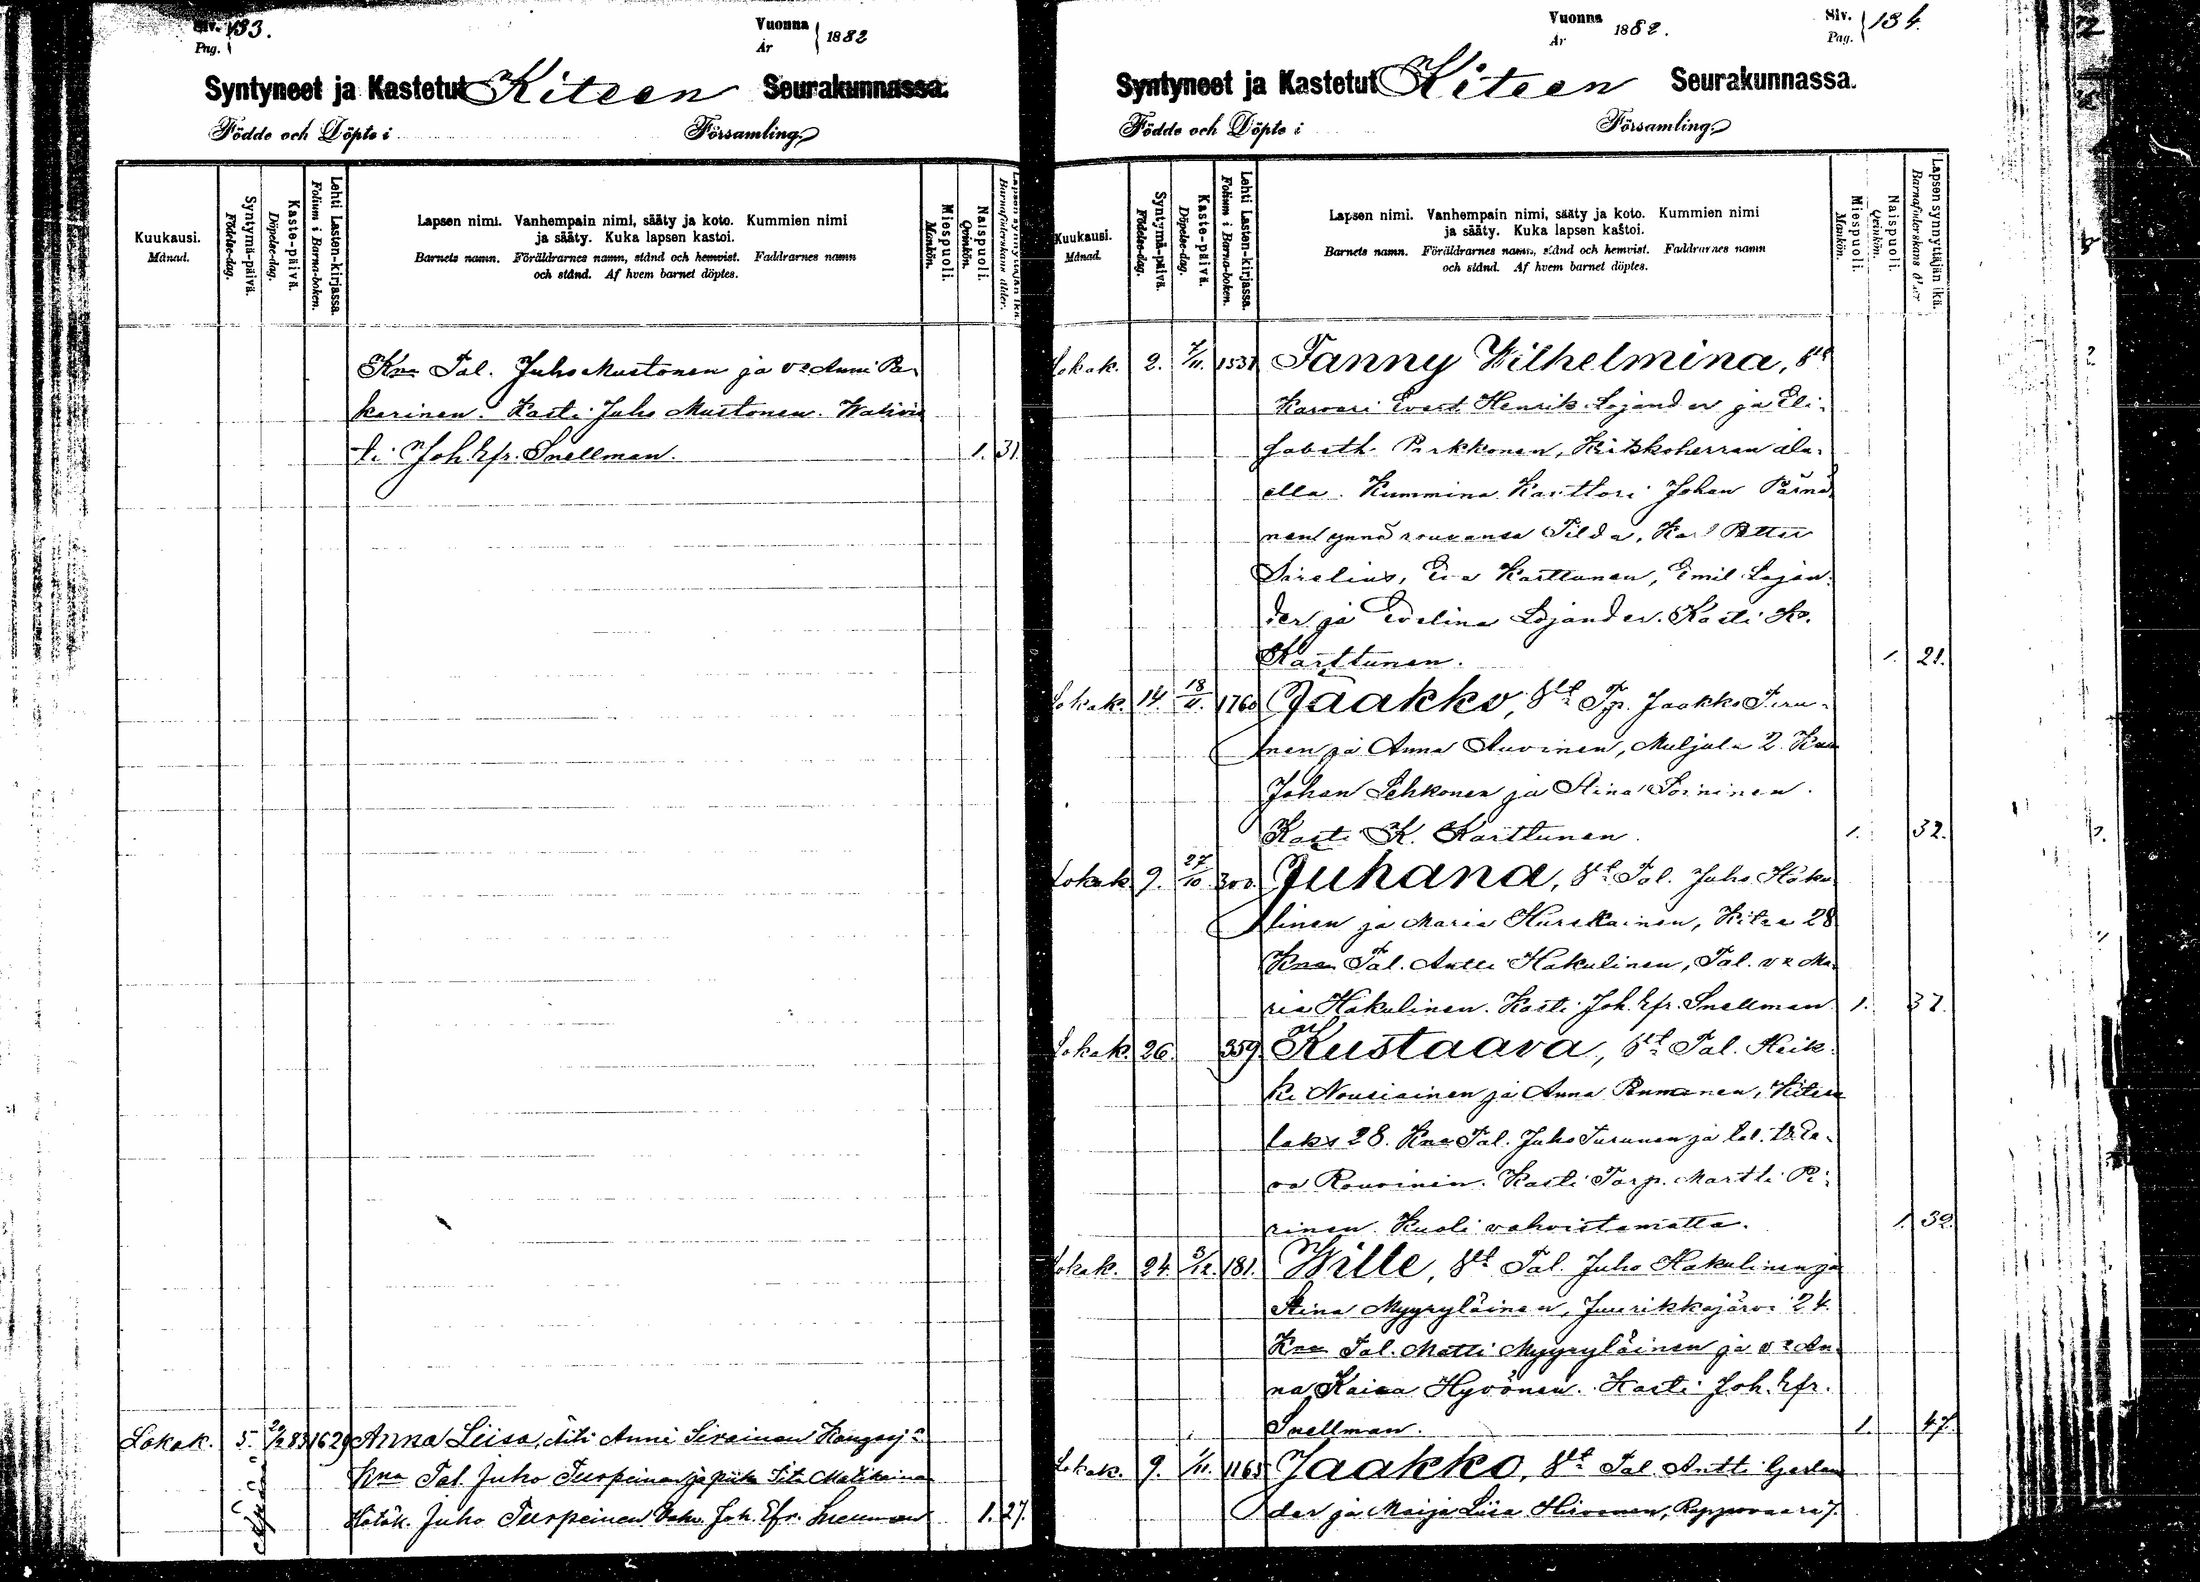 Siv. 133.
Pag.
Vuonna 1882
År
Syntyneet ja Kastetut Kiteen Seurakunnassa.
Födde och Döpte i Församling.
Kuukausi.
Månad.
Syntymä-päivä.
Födelse-dag.
Kaste-päivä.
Döpelse-dag.
Lehti Lasten-kirjassa.
Folium i Barna-boken.
Lapsen nimi. Vanhempain nimi, sääty ja koto. Kummien nimi
ja sääty. Kuka lapsen kastoi.
Barnets namn. Föräldrarnes namn, stånd och hemvist. Faddrarnes namn
och stånd. Af hvem barnet döptes.
Miespuoli.
Mankön.
Naispuoli.
Qvinkön.
Lapsen synnyttäjän ikä.
Barnaföderskans ålder.
Kna Tal. Juho Mustonen ja vo Anni Pa-
karinen. Kasti Juho Mustonen. Wahvis
ti Joh. Efr. Snellman. 1. 31.
Lokak. 5. 1629 Anna Liisa, äiti Anni Sirainen
Kna Tal. Juho Turpeinen ja piika
Hätäk. Juho Turpeinen Vahv. Joh. Efr. Snellman 1. 27.
Vuonna 1882.
År
Siv. 134.
Pag.
Syntyneet ja Kastetut Kiteen Seurakunnassa.
Födde och Döpte i Församling.
Kuukausi.
Månad.
Syntymä-päivä.
Födelse-dag.
Kaste-päivä.
Döpelse-dag.
Lehti Lasten-kirjassa.
Folium i Barna-boken.
Lapsen nimi. Vanhempain nimi, sääty ja koto. Kummien nimi
ja sääty. Kuka lapsen kastoi.
Barnets namn. Föräldrarnes namn, stånd och hemvist. Faddrarnes namn
och stånd. Af hvem barnet döptes.
Miespuoli.
Mankön.
Naispuoli.
Qvinkön.
Lapsen synnyttäjän ikä.
Barnaföderskans ålder.
Lokak. 2. 7/11. 1531 Fanny Wilhelmina, vht
Karvari Evert Henrik Lojander ja Eli-
sabeth Parkkonen, Kirkkoherran ala-
alla. Kummina Kanttori Johan Pärnä-
nen ynnä rouvansa Tilda, Karl Petter
Sirelius, Eva Karttunen, Emil Lojan-
der ja Evelina Lojander. Kasti K.
Karttunen. 1. 21.
Lokak. 14. 18/11. 1760 Jaakko, vht Tp. Jaakko Piru-
nen ja Anna Auvinen, Muljula 2. Kna
Johan Lehkonen ja Stina Soininen.
Kasti K. Karttunen. 1. 32.
Lokak. 9. 27/10 300. Juhana, vht Tal. Juho Haku-
linen ja Maria Hurskainen, Kitee 28
Kna Tal. Antti Hakulinen, Tal. vo Ma-
ria Hakulinen. Kasti Joh. Efr. Snellman 1. 37.
Lokak. 26. 359 Kustaava, vht Tal. Heik-
ki Nousiainen ja Anna Ronanen, Kiteen
laks 28. Kna Tal. Juho Turunen ja tal. vo E-
va Rouvinen. Kasti Torp. Martti Pi-
rinen. Kuoli vahvistamatta. 1. 32.
Lokak. 24. 3/12. 181. Wille, vht Tal. Juho Hakulinen ja
Stina Myyryläinen, Juurikkajärvi 24.
Kna Tal. Matti Myyryläinen ja vo An-
na Kaisa Hyvönen. Kasti Joh. Efr.
Snellman. 1. 47.
Lokak. 9. 1/11. 1165 Jaakko, vht Tal. Antti Gerlan-
der ja Maija Liisa Hirvonen, Rappovaara 7.